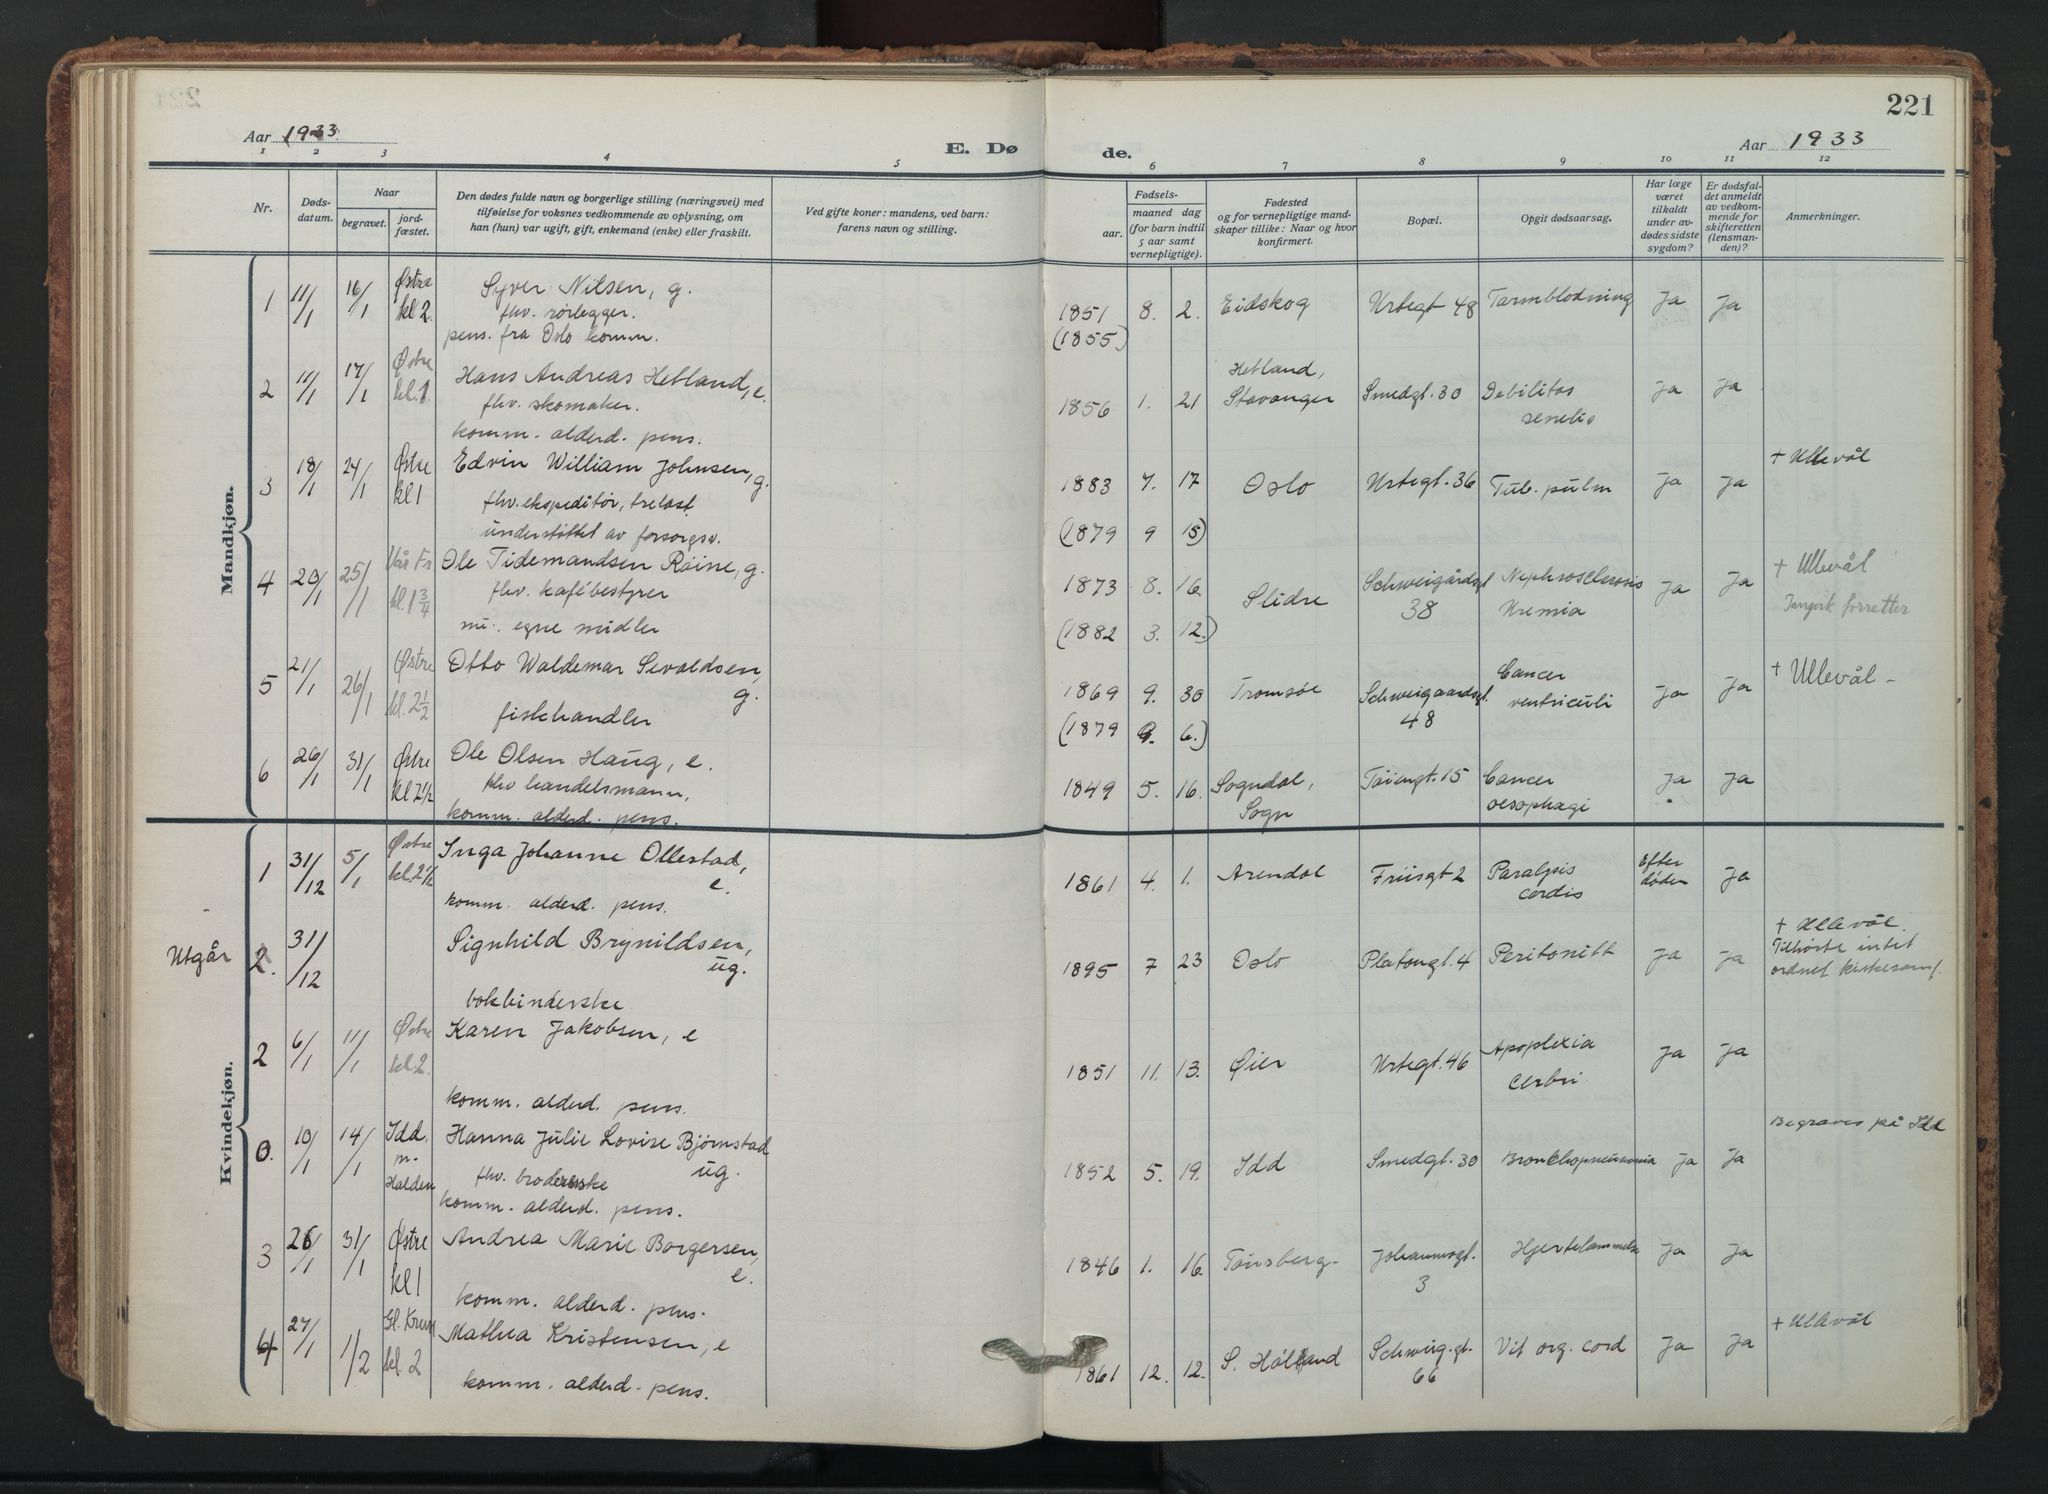 221
Aar 1933.
E. Døde.
Aar 1933
1 2 3 4 5 6 7 8 9 10 11 12
Nr.
Døds-
datum.
Naar
begravet.
jord-
fæstet.
Den dødes fulde navn og borgerlige stilling (næringsvei) med
tilføielse for voksnes vedkommende av oplysning, om
han (hun) var ugift, gift, enkemand (enke) eller fraskilt.
Ved gifte koner: mandens, ved barn:
farens navn og stilling.
Fødsels-
aar. maaned dag
(for barn indtil
5 aar samt
vernepligtige).
Fødested
og for vernepligtige mand-
skaper tillike: Naar og hvor
konfirmert.
Bopæl.
Opgit dødsaarsag.
Har læge
været
tilkaldt
under av-
dødes sidste
sygdom?
Er dødsfal-
det anmeldt
av vedkom-
mende for
skifteretten
(lensman-
den)?
Anmerkninger.
Mandkjøn.
1 11/1 16/1 Østre kl 2. Syver Nilsen, g. 1851 8. 2. Eidskog Urtegt 48 Tarmblødning Ja Ja
fhv. rørlegger.
pens. fra Oslo komm. (1855)
2 11/1 17/1 Østre kl. 1. Hans Andreas Hetland, e. 1856 1. 21 Hetland, Stavanger Smedgt. 30 Debilitas senelis Ja Ja
fhv. skomaker.
komm. alderd. pens.
3 18/1 24/1 Østre kl 1 Edvin William Johnsen, g. 1883 7. 17 Oslo Urtegt. 36 Tub. pulm Ja Ja + Ullevål
fhv. ekspeditør, trelast
understøttet av forsorgsv. (1879 9 15)
4 20/1 25/1 Vår Fr kl. 1 3/4 Ole Tidemandsen Røine, g. 1873 8. 16. Slidre Schweigårdsgt 38 Nephrosclerosis Uremia Ja Ja + Ullevål
forretter
fhv. kafébestyrer
egne midler (1882 3. 12.)
5 21/1 26/1 Østre kl. 2 1/2 Otto Waldemar Sevaldsen, g. 1869 9. 30 Tromsøe Schweigaardsgt. 48 Cancer ventriculi Ja Ja + Ullevål -
fiskehandler (1879 9. 6.)
6 26/1 31/1 Østre kl 2 1/2 Ole Olsen Haug, e. 1849 5. 16. Sogndal, Sogn Tøiengt. 15 Cancer oesophagi Ja Ja
fhv handelsmann,
komm. alderd. pens.
Kvindekjøn.
1 31/12 5/1 Østre kl. 2 1/2 Inga Johanne Ollestad, e. 1861 4. 1. Arendal Friisgt 2 Paralysis cordis Efter døden Ja
komm. alderd. pens.
Utgår 2. 31/12 Signhild Brynildsen, ug. 1895 7 23 Oslo Platougt. 4 Peritonitt Ja Ja + Ullevål.
Tilhørte intet
ordnet kirkesamf.
bokbinderske
2 6/1 11/1 Østre kl. 2. Karen Jakobsen, e 1851 11. 13. Øier Urtegt. 46 Apoplexia cerbri Ja Ja
komm. alderd. pens.
0. 10/1 14/1 Idd. p. Halden Hanna Julie Lovise Bjørnstad ug. 1852 5. 19. Idd Smedgt. 30 Bronchopneumonia Ja Ja Begraves på Idd
fhv. broderske
komm. alderd. pens.
3 26/1 31/1 Østre kl 1 Andrea Marie Borgersen, e. 1846 1. 16. Tønsberg - Johannesgt. 3 Hjertelammelse Ja Ja
komm. alderd. pens.
4 27/1 1/2 Gl. Krem kl. 2 Mathea Kristensen, e 1861 12. 12. S. Høland Schweig.gt. 66 Vit org. cord Ja Ja + Ullevål
komm. alderd. pens.